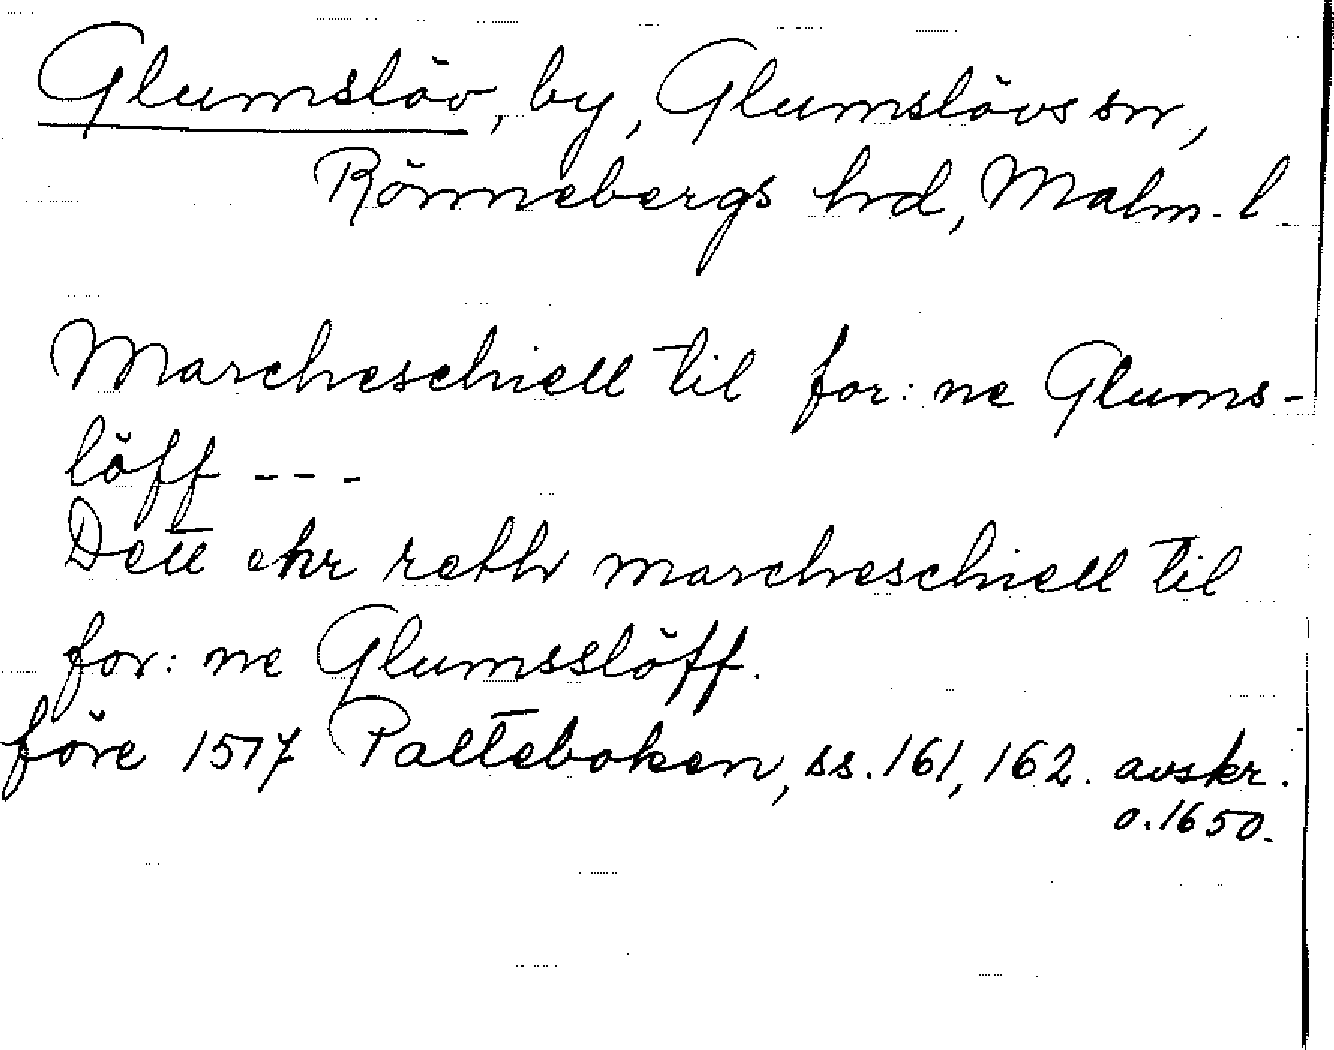 Glumslöv, by, Glumslövs sn,
Rönnebergs hd, Malm. l.
Marcheschiell til for: ne Glums-
löff ---
Dett ehr reth marcheschiell til
for: ne Glumsslöff.
före 1517 Palteboken, ss. 161, 162. avskr.
o. 1650.